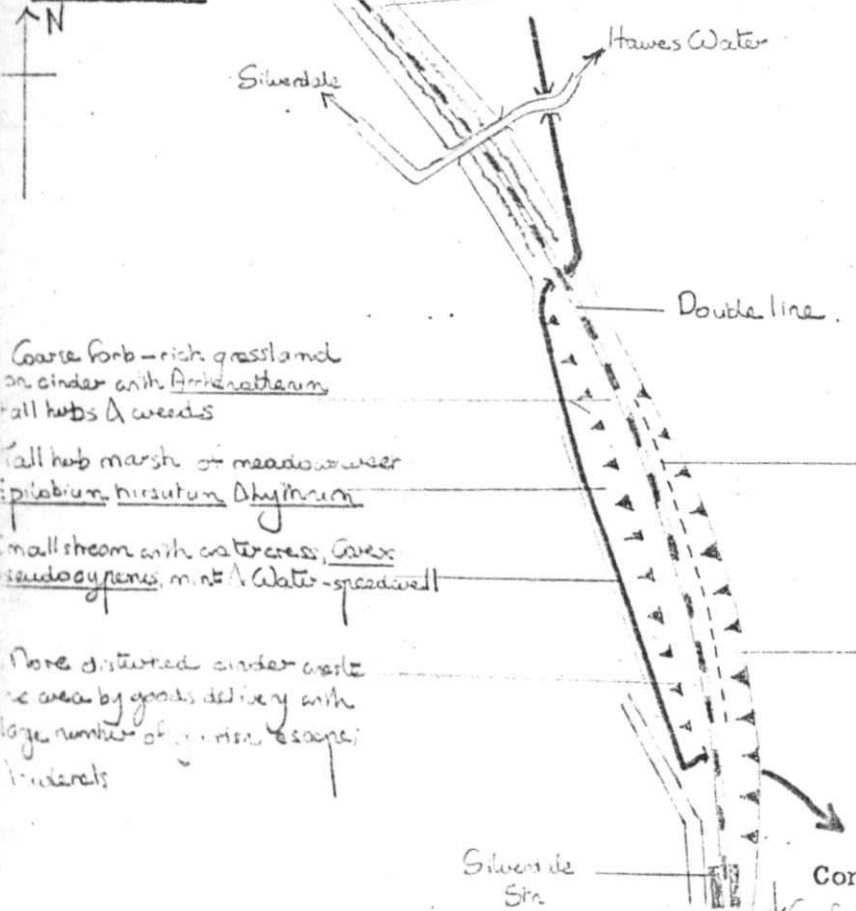 N
Hawes Water
Silverdale
Double line.
Coarse forb-rich grassland
on cinder with Arrhenatherum
tall herbs & weeds
Tall herb marsh of meadowsweet
Epilobium hirsutum & Lythrum
Small stream with watercress, Carex
pseudocyperus, mint & Water-speedwell
More disturbed cinder waste
area by goods delivery with
large number of escapes
Silverdale
Stn
Con